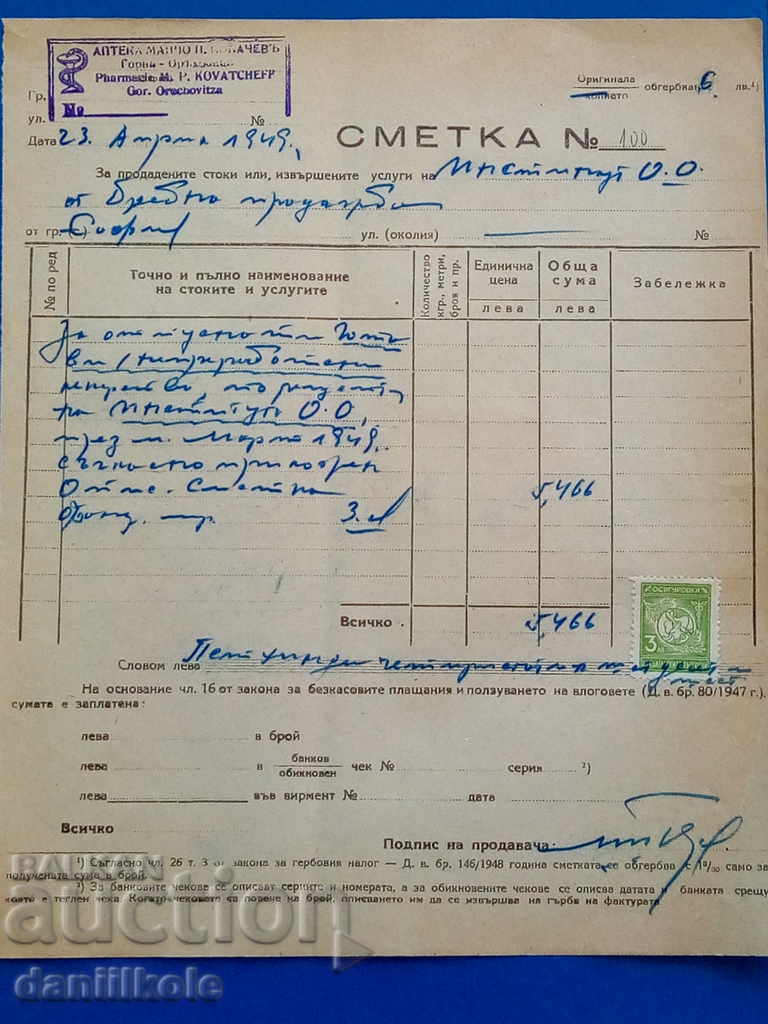 АПТЕКА МАНЧО П. КОВАЧЕВЪ
Горна-Оряховица
Pharmacie M. P. KOVATCHEFF
Gor. Orechovitza
№
Гр.
ул. №
Оригинала
копието обгербван 6 лв.¹)
Дата 23. Април 1949.
СМЕТКА № 100
За продадените стоки или извършените услуги на Институт О.О.
от
от гр. (с) София ул. (околия) №
№ по ред
Точно и пълно наименование на стоките и услугите
Количество кгр., метри, броя и пр.
Единична цена
лева
Обща сума
лева
Забележка
За
ви
на Институт О.О,
през м. Март 1949,
съгласно
Опис-Сметка 5,466
3.
Всичко 5,466
ОСИГУРОВКИ
3 ЛВ
Словом лева Пет хиляди четиристотин шестдесет и
шест
На основание чл. 16 от закона за безкасовите плащания и ползуването на влоговете (Д. в. бр. 80/1947 г.),
сумата е заплатена:
лева в брой
лева в банков
обикновен чек № серия ²)
лева във вирмент № дата
Всичко
Подпис на продавача:
¹) Съгласно чл. 26 т. 3 от закона за гербовия налог — Д. в. бр. 146/1948 година сметката се обгербва с 1⁰/₀₀ само за
получената сума в брой.
²) За банковите чекове се описват сериите и номерата, а за обикновените чекове се описва датата и банката срещу
която е теглен чека. Когато чековете са повече на брой, описването им да се извършва на гърба на фактурата
BALKAN
auction
daniilkole